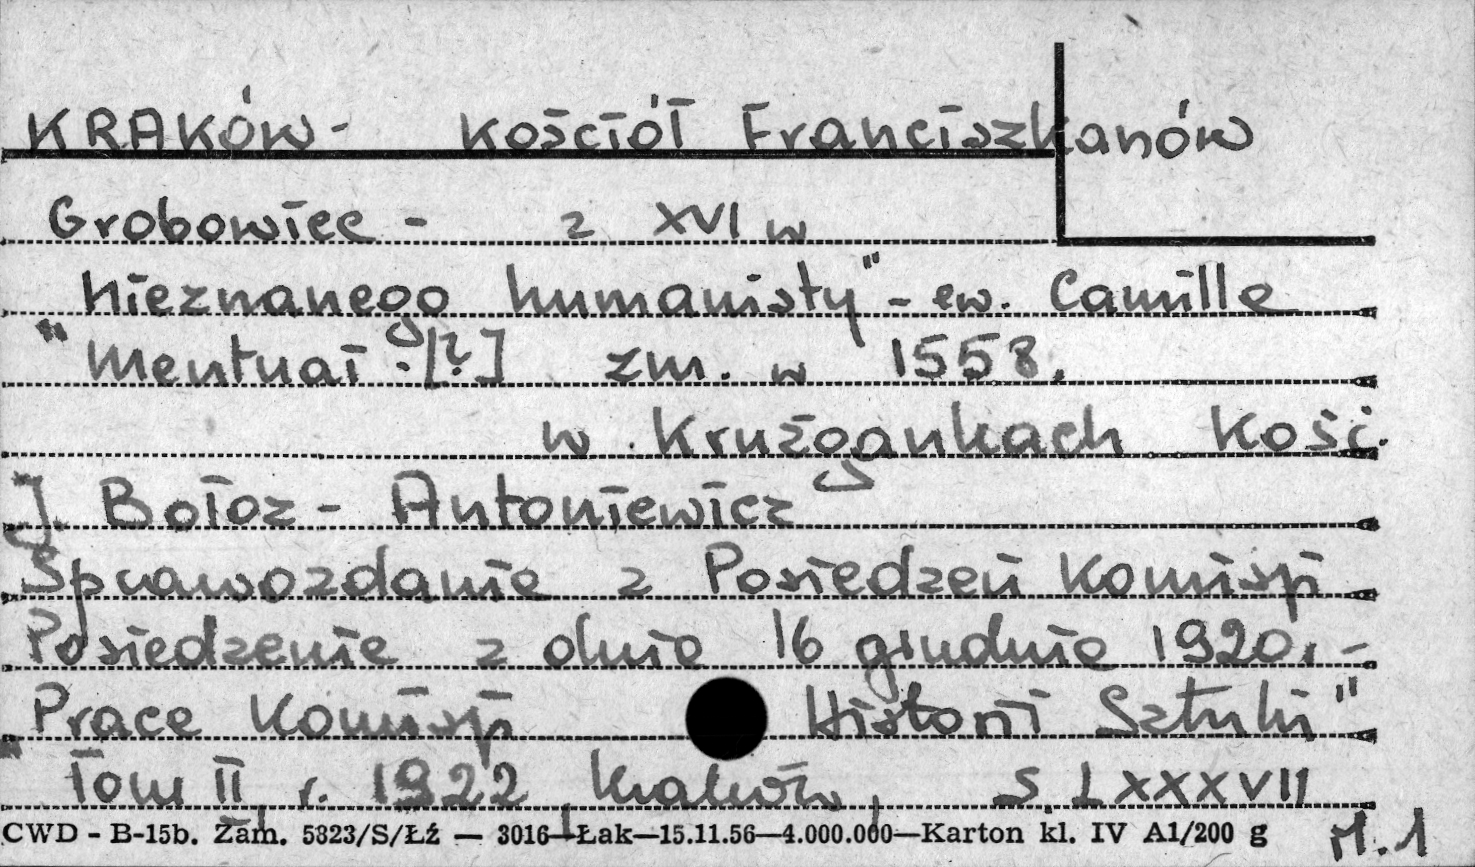 KRAKÓW - Kościół Franciszkanów
Grobowiec - z XVI w
nieznanego humanisty" - ew. Camille
"Mentuał [?] zm. w 1558.
w Krużgankach Kośc.
J. Bołoz - Antoniewicz
Sprawozdanie z Posiedzeń Komisji
Posiedzenie z dnia 16 grudnia 1920, -
"Prace Komisji Historii Sztuki"
Tom II, r. 1922, Kraków, s. LXXXVII
CWD - B-15b. Zam. 5323/S/Łź — 3016—Łak—15.11.56—4.000.000—Karton kl. IV A1/200 g